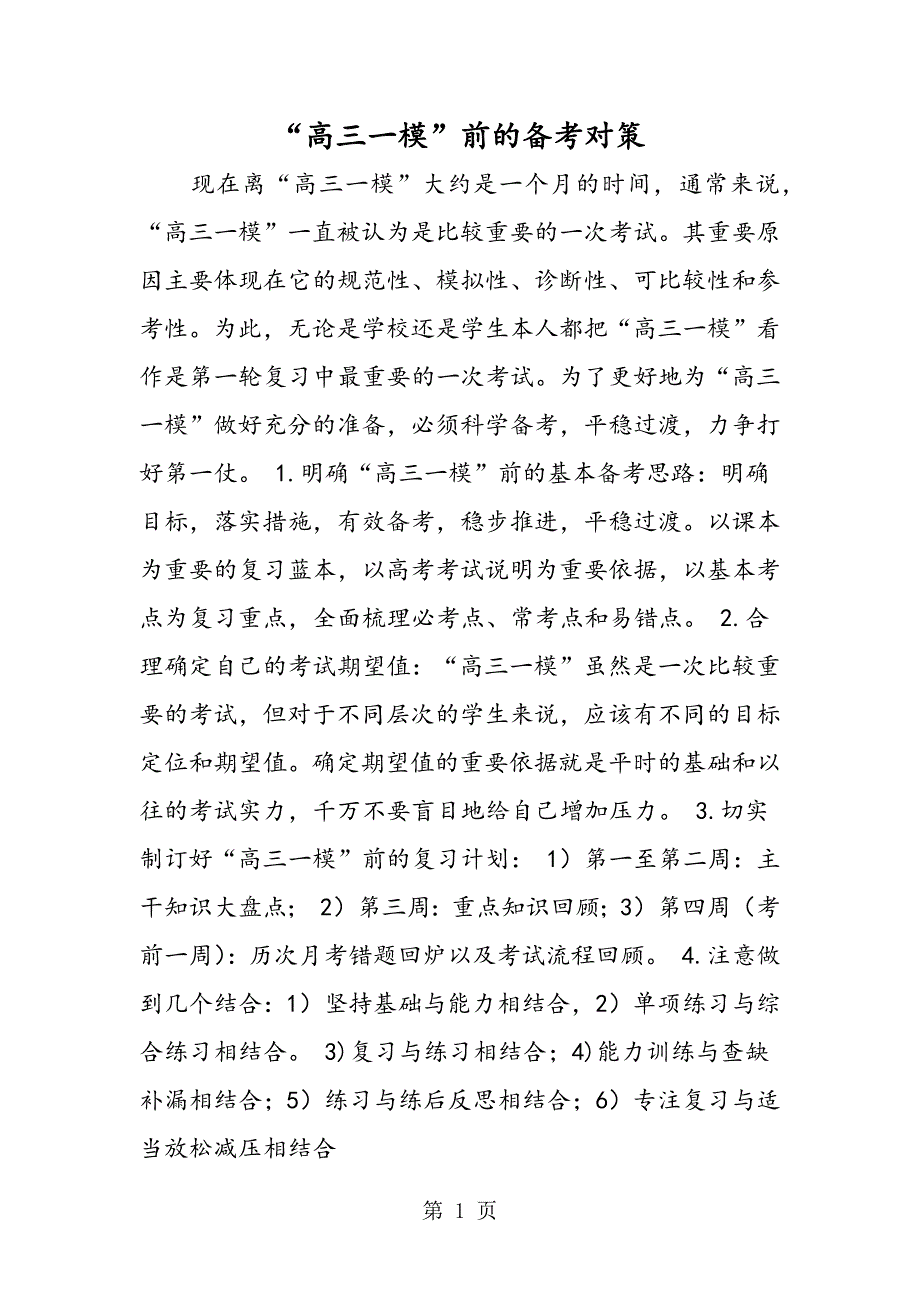 “高三一模”前的备考对策
现在离“高三一模”大约是一个月的时间，通常来说，
“高三一模”一直被认为是比较重要的一次考试。其重要原
因主要体现在它的规范性、模拟性、诊断性、可比较性和参
考性。为此，无论是学校还是学生本人都把“高三一模”看
作是第一轮复习中最重要的一次考试。为了更好地为“高三
一模”做好充分的准备，必须科学备考，平稳过渡，力争打
好第一仗。 1.明确“高三一模”前的基本备考思路：明确
目标，落实措施，有效备考，稳步推进，平稳过渡。以课本
为重要的复习蓝本，以高考考试说明为重要依据，以基本考
点为复习重点，全面梳理必考点、常考点和易错点。 2.合
理确定自己的考试期望值：“高三一模”虽然是一次比较重
要的考试，但对于不同层次的学生来说，应该有不同的目标
定位和期望值。确定期望值的重要依据就是平时的基础和以
往的考试实力，千万不要盲目地给自己增加压力。 3.切实
制订好“高三一模”前的复习计划： 1）第一至第二周：主
干知识大盘点； 2）第三周：重点知识回顾；3）第四周（考
前一周）：历次月考错题回炉以及考试流程回顾。 4.注意做
到几个结合：1）坚持基础与能力相结合，2）单项练习与综
合练习相结合。 3)复习与练习相结合；4)能力训练与查缺
补漏相结合；5）练习与练后反思相结合；6）专注复习与适
当放松减压相结合
第 1 页